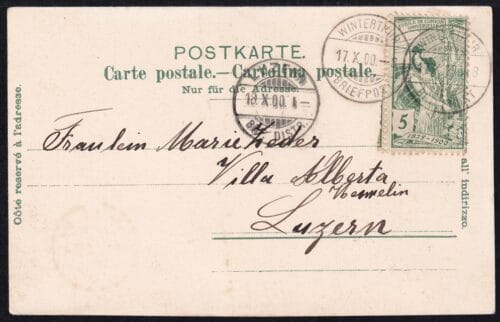 POSTKARTE.
Carte postale.—Cartolina postale.
Nur für die Adresse.
Côté réservé à l'adresse.
all' indirizzo.
WINTERTHUR
17.X.00.
BRIEFPOST
LUZERN
18.X.00.
BRF. DISTR.
5
1875-1900
Fraulein Marie Zeder
Villa Alberta
Luzern